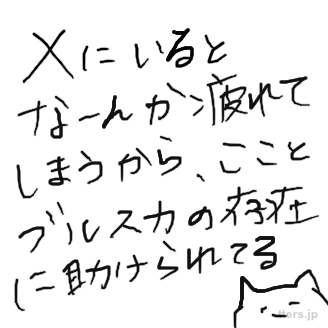 Xにいると
なーんか疲れて
しまうから、ここと
ブルスカの存在
に助けられてる